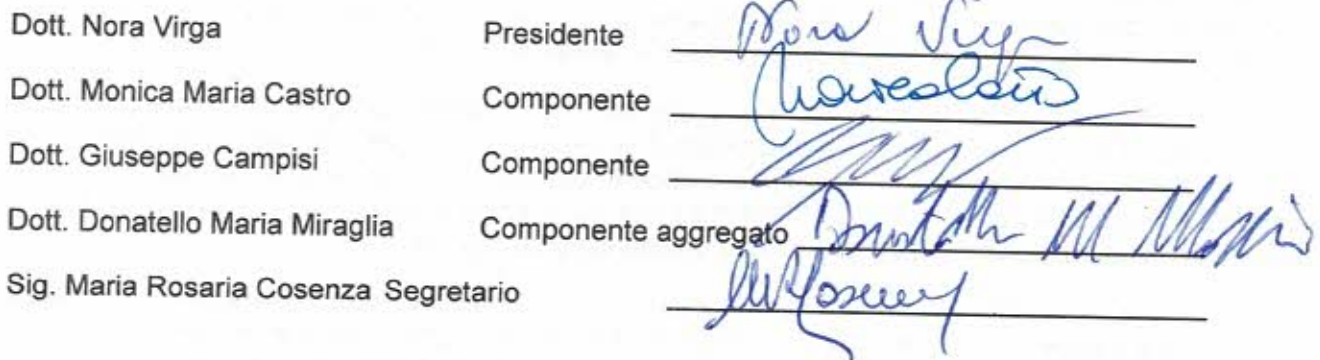 Dott. Nora Virga Presidente Nora Virga
Dott. Monica Maria Castro Componente
Dott. Giuseppe Campisi Componente
Dott. Donatello Maria Miraglia Componente aggregato Donatello M
Sig. Maria Rosaria Cosenza Segretario